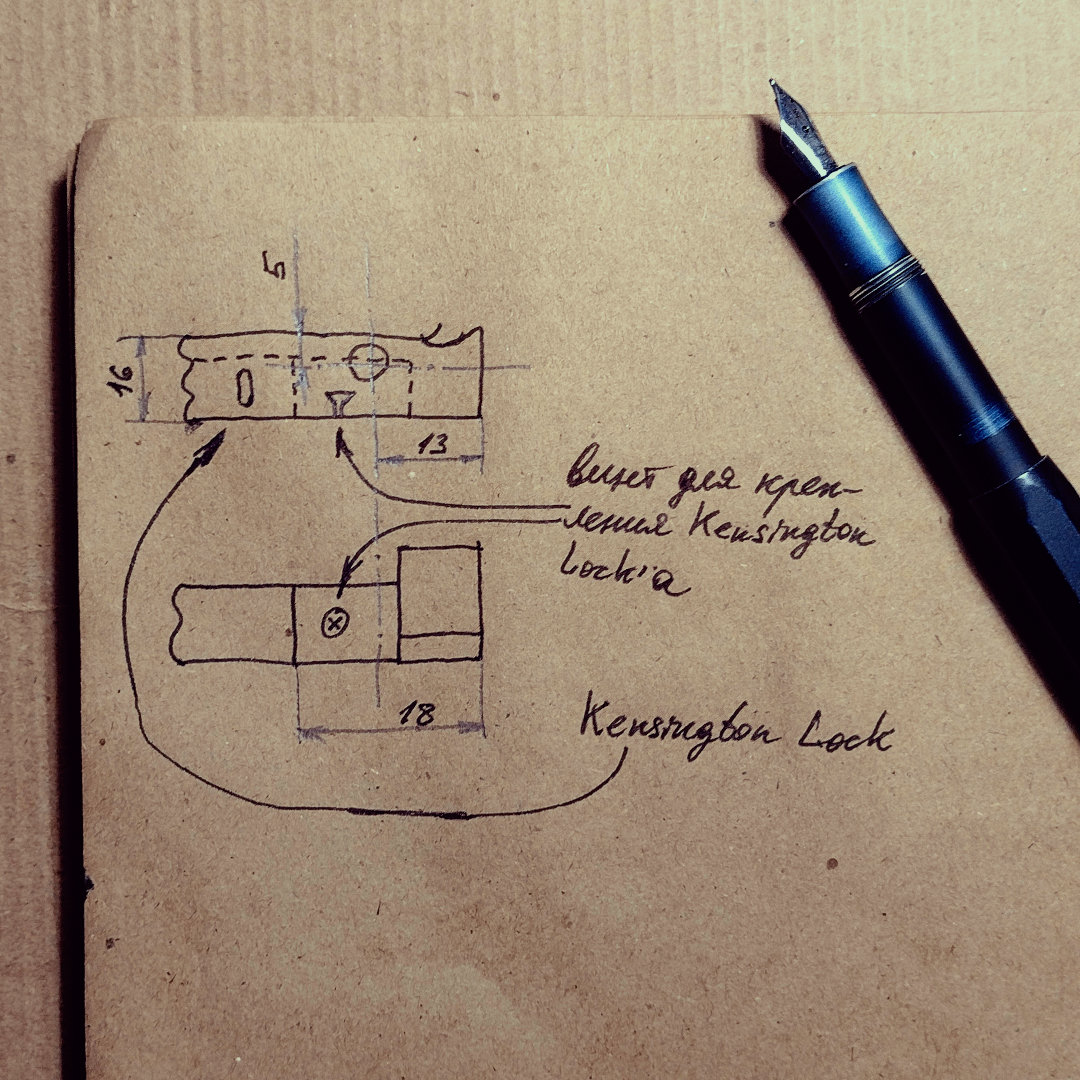 5
16
13
винт для креп-
ления Kensington
Lock'а
18
Kensington Lock